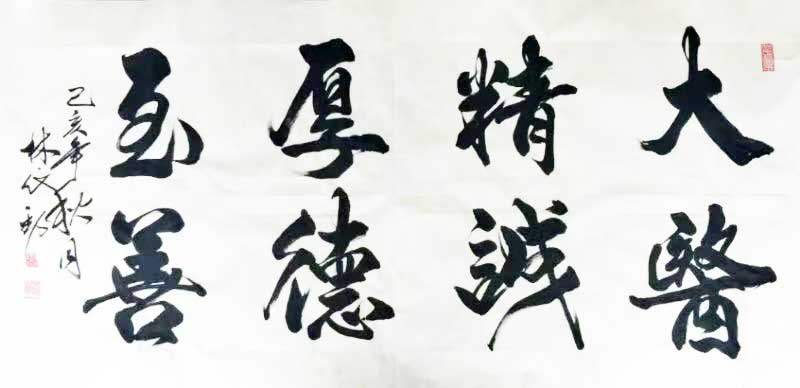 大醫
精誠
厚德
至善
己亥年秋月
林仪彩